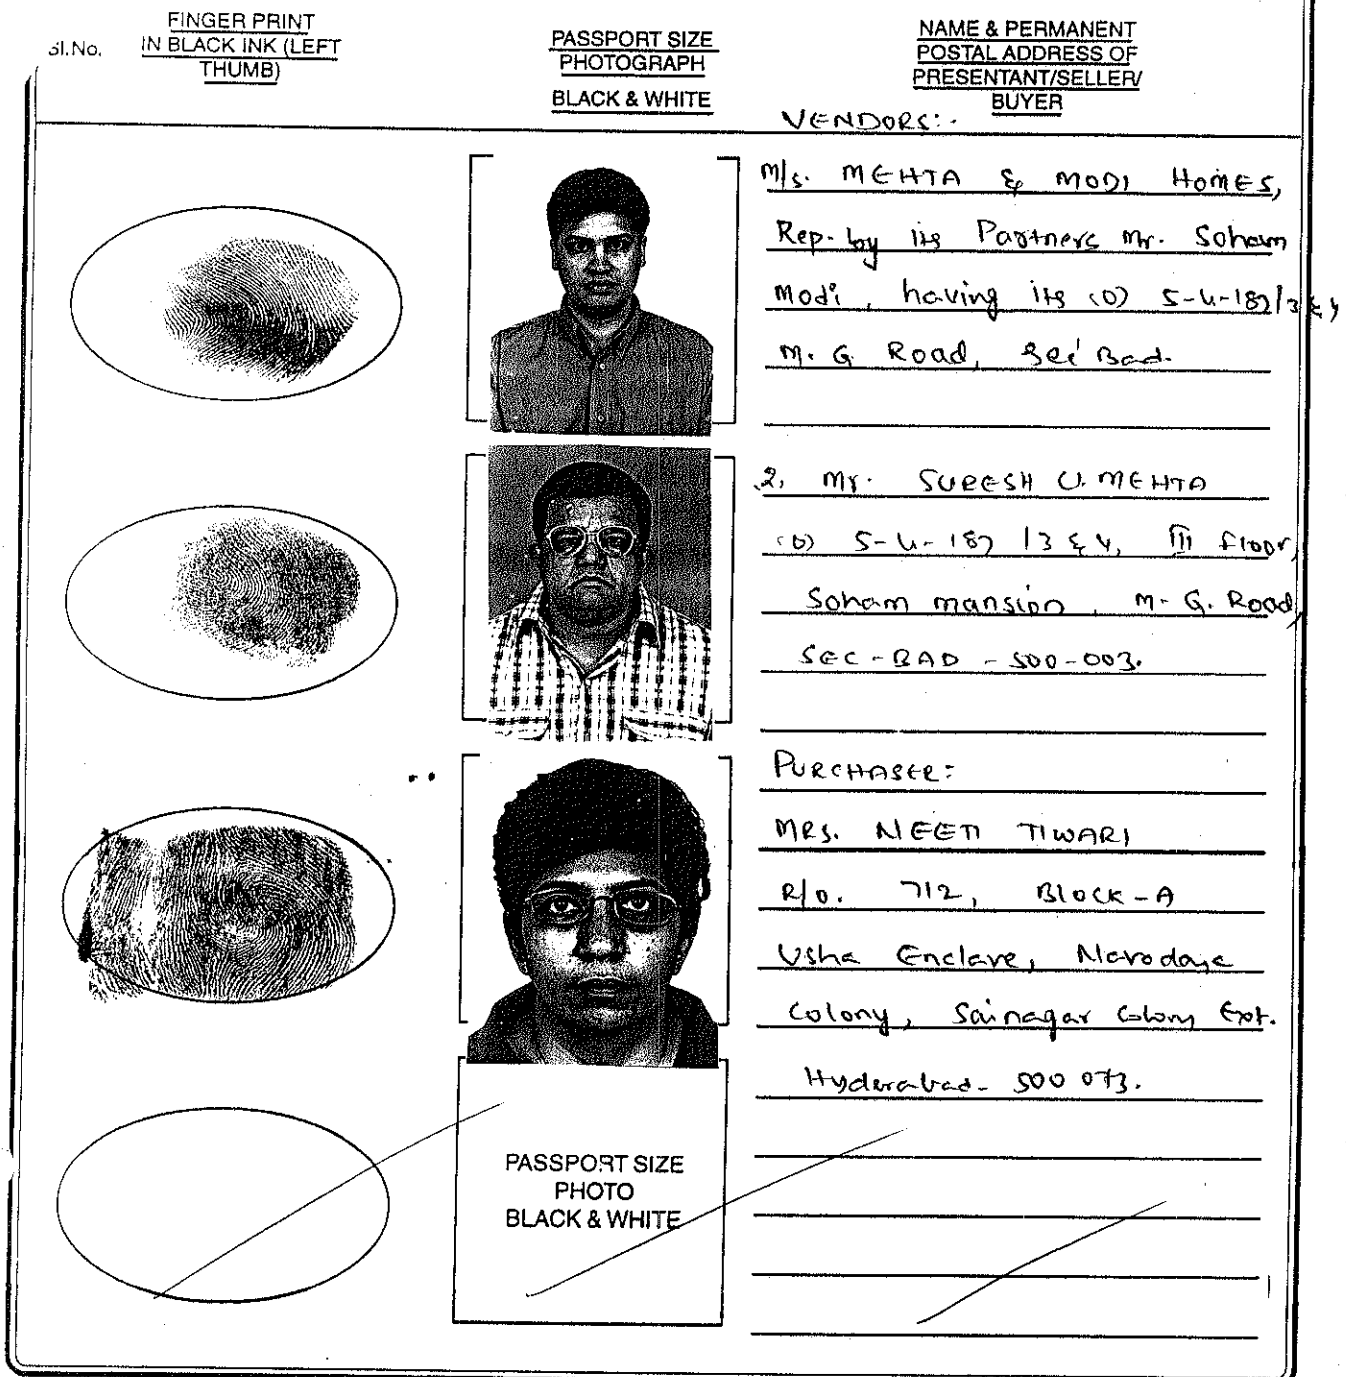 Sl.No.
FINGER PRINT
IN BLACK INK (LEFT
THUMB)
PASSPORT SIZE
PHOTOGRAPH
BLACK & WHITE
NAME & PERMANENT
POSTAL ADDRESS OF
PRESENTANT/SELLER/
BUYER
VENDORS:-
M/s. MEHTA & MODI HOMES,
Rep. by its Partners Mr. Soham
Modi, having its (O) 5-4-187/3 & 4
M. G. Road, Sec'Bad.
2. Mr. SURESH U. MEHTA
(O) 5-4-187/3 & 4, III Floor,
Soham mansion, M. G. Road,
SEC-BAD - 500-003.
PURCHASER:
MRS. NEETI TIWARI
R/o. 712, BLOCK-A
Usha Enclave, Navodaya
Colony, Sainagar Colony Ext.
Hyderabad- 500 073.
PASSPORT SIZE
PHOTO
BLACK & WHITE